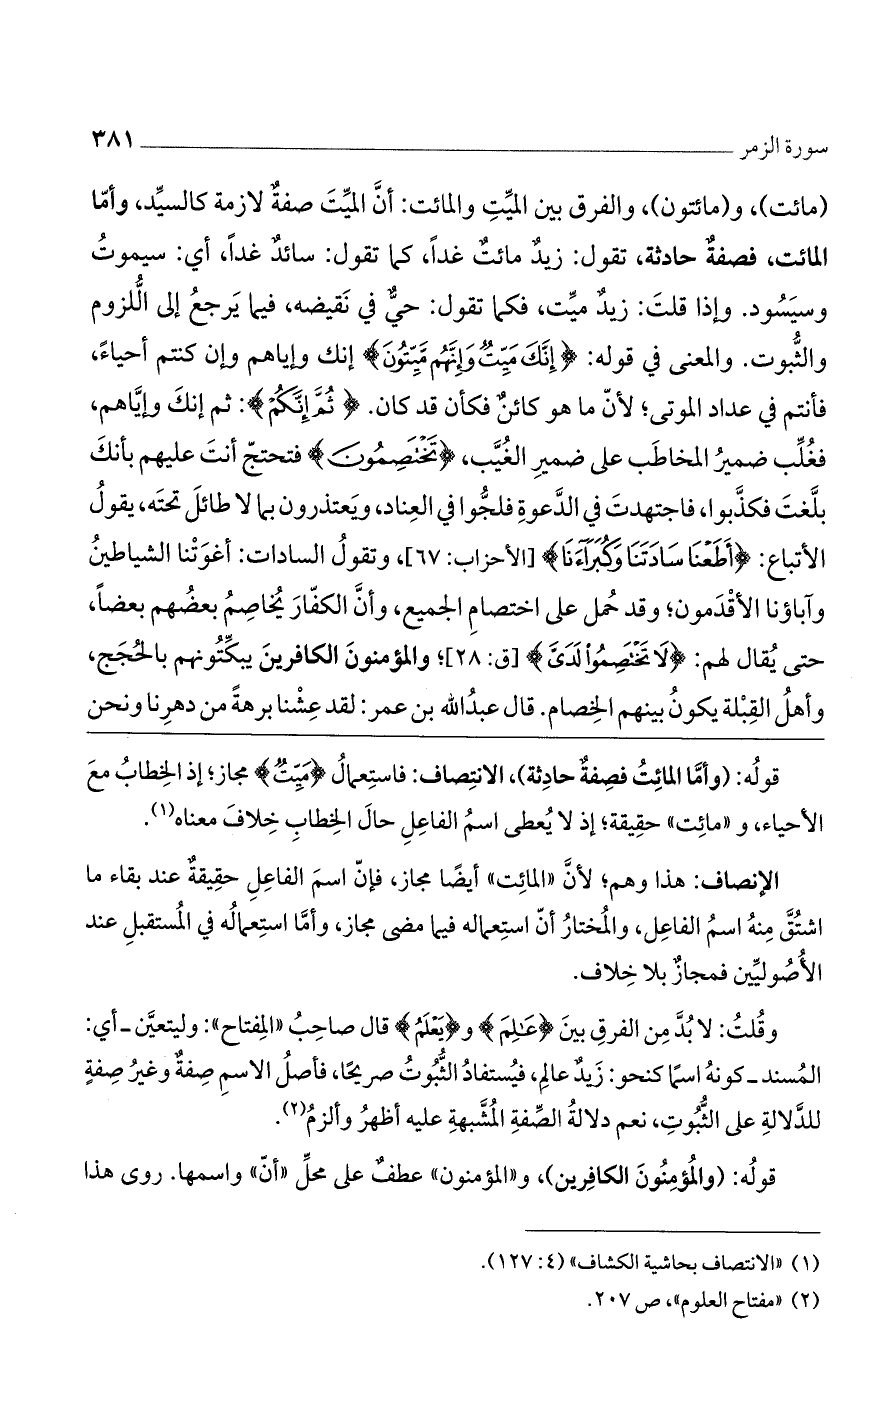 سورة الزمر ٣٨١
(مائت)، و(مائتون)، والفرق بين الميِّتِ والمائت: أنَّ الميِّتَ صفةٌ لازمة كالسيِّد، وأمّا
المائت، فصفةٌ حادثة، تقول: زيدٌ مائتٌ غداً، كما تقول: سائدٌ غداً، أي: سيموتُ
وسيَسُود. وإذا قلتَ: زيدٌ ميِّت، فكما تقول: حيٌّ في نَقيضه، فيما يَرجعُ إلى اللُّزوم
والثُّبوت. والمعنى في قوله: ﴿إِنَّكَ مَيِّتٌ وَإِنَّهُم مَّيِّتُونَ﴾ إنك وإياهم وإن كنتم أحياءً،
فأنتم في عداد الموتى؛ لأنّ ما هو كائنٌ فكأن قد كان. ﴿ثُمَّ إِنَّكُمْ﴾: ثم إنكَ وإيَّاهم،
فغُلِّب ضميرُ المخاطَب على ضميرِ الغُيَّب، ﴿تَخْتَصِمُونَ﴾ فتحتجّ أنتَ عليهم بأنكَ
بلَّغتَ فكذَّبوا، فاجتهدتَ في الدَّعوةِ فلجُّوا في العِناد، ويَعتذرون بما لا طائلَ تحتَه، يقولُ
الأتباع: ﴿أَطَعْنَا سَادَتَنَا وَكُبَرَاءَنَا﴾ [الأحزاب: ٦٧]، وتقولُ السادات: أغوَتْنا الشياطينُ
وآباؤنا الأقْدَمون؛ وقد حُمل على اختصامِ الجميع، وأنَّ الكفّارَ يُخاصِمُ بعضُهم بعضاً،
حتى يُقال لهم: ﴿لَا تَخْتَصِمُوا لَدَيَّ﴾ [ق: ٢٨]؛ والمؤمنونَ الكافرينَ يبكِّتُونهم بالحُجَج،
وأهلُ القِبْلة يكونُ بينهم الخِصام. قال عبدُالله بن عمر: لقد عِشْنا برهةً من دهرِنا ونحن
قولُه: (وأمَّا المائِتُ فصِفةٌ حادِثة)، الانتِصاف: فاستِعمالُ ﴿مَيِّتٌ﴾ مجاز؛ إذ الخِطابُ معَ
الأحياء، و «مائِت» حقيقة؛ إذ لا يُعطى اسمُ الفاعلِ حالَ الخِطابِ خِلافَ معناه(١).
الإنصاف: هذا وهم؛ لأنَّ «المائِت» أيضًا مجاز، فإنّ اسمَ الفاعلِ حقيقةٌ عند بقاء ما
اشتُقَّ مِنهُ اسمُ الفاعل، والمُختارُ أنّ استِعماله فيما مضى مجاز، وأمَّا استِعمالُه في المُستقبلِ عند
الأُصُوليِّين فمجازٌ بلا خِلاف.
وقُلتُ: لا بُدَّ مِن الفرقِ بينَ ﴿عَالِمَ﴾ و﴿يَعْلَمُ﴾ قال صاحِبُ «المِفتاح»: وليتعيَّن ـ أي:
المُسند ـ كونهُ اسمًا كنحو: زَيدٌ عالِم، فيُستفادُ الثُّبُوتُ صريحًا، فأصلُ الاسمِ صِفةٌ وغيرُ صِفةٍ
للدَّلالةِ على الثُّبُوتِ، نعم دلالةُ الصِّفةِ المُشَّبهةِ عليه أظهرُ وألزمُ(٢).
قولُه: (والمُؤمِنُونَ الكافِرين)، و«المؤمنون» عطفٌ على محلِّ «أنّ» واسمها. روى هذا
(١) «الانتصاف بحاشية الكشاف» (٤: ١٢٧).
(٢) «مفتاح العلوم»، ص ٢٠٧.